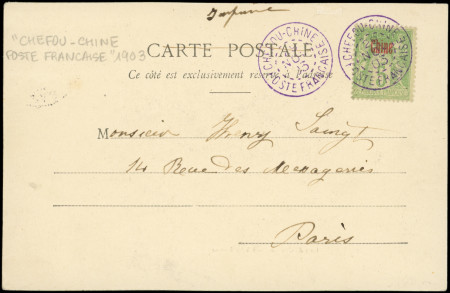 Imprimé
"CHEFOU-CHINE
POSTE FRANCAISE" 1903
CARTE POSTALE
Ce côté est exclusivement réservé à l'adresse
TCHEFOU-CHINE
03
POSTE FRANÇAISE
TCHEFOU-CHINE
03
POSTE FRANÇAISE
CHINE
Monsieur Henry
14 Rue des Messageries
Paris